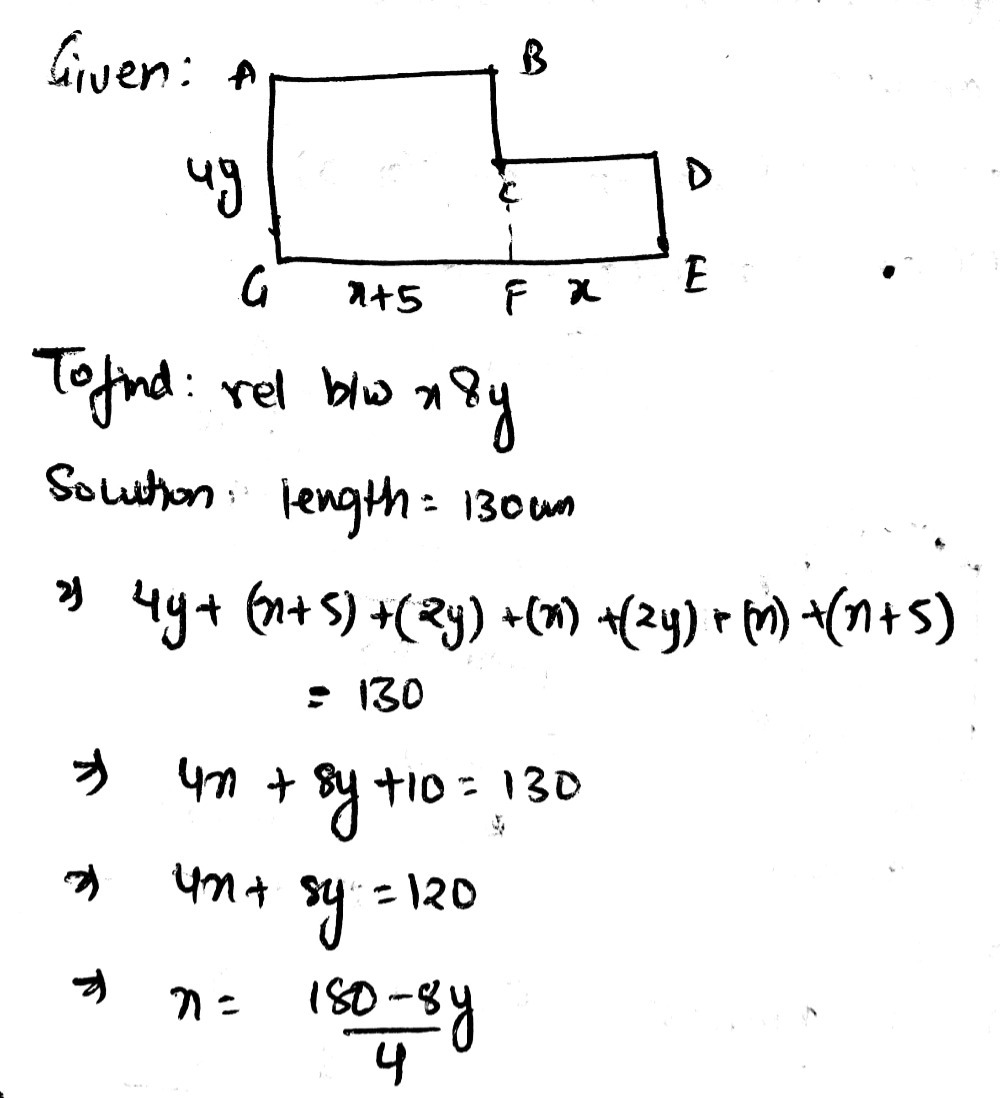 Given: A B
4y C D
G x+5 F x E
To find: rel b/w x & y
Solution: length = 130 cm
⇒ 4y + (x+5) + (2y) + (x) + (2y) + (x) + (x+5)
= 130
⇒ 4x + 8y + 10 = 130
⇒ 4x + 8y = 120
⇒ x = 180 - 8y
4